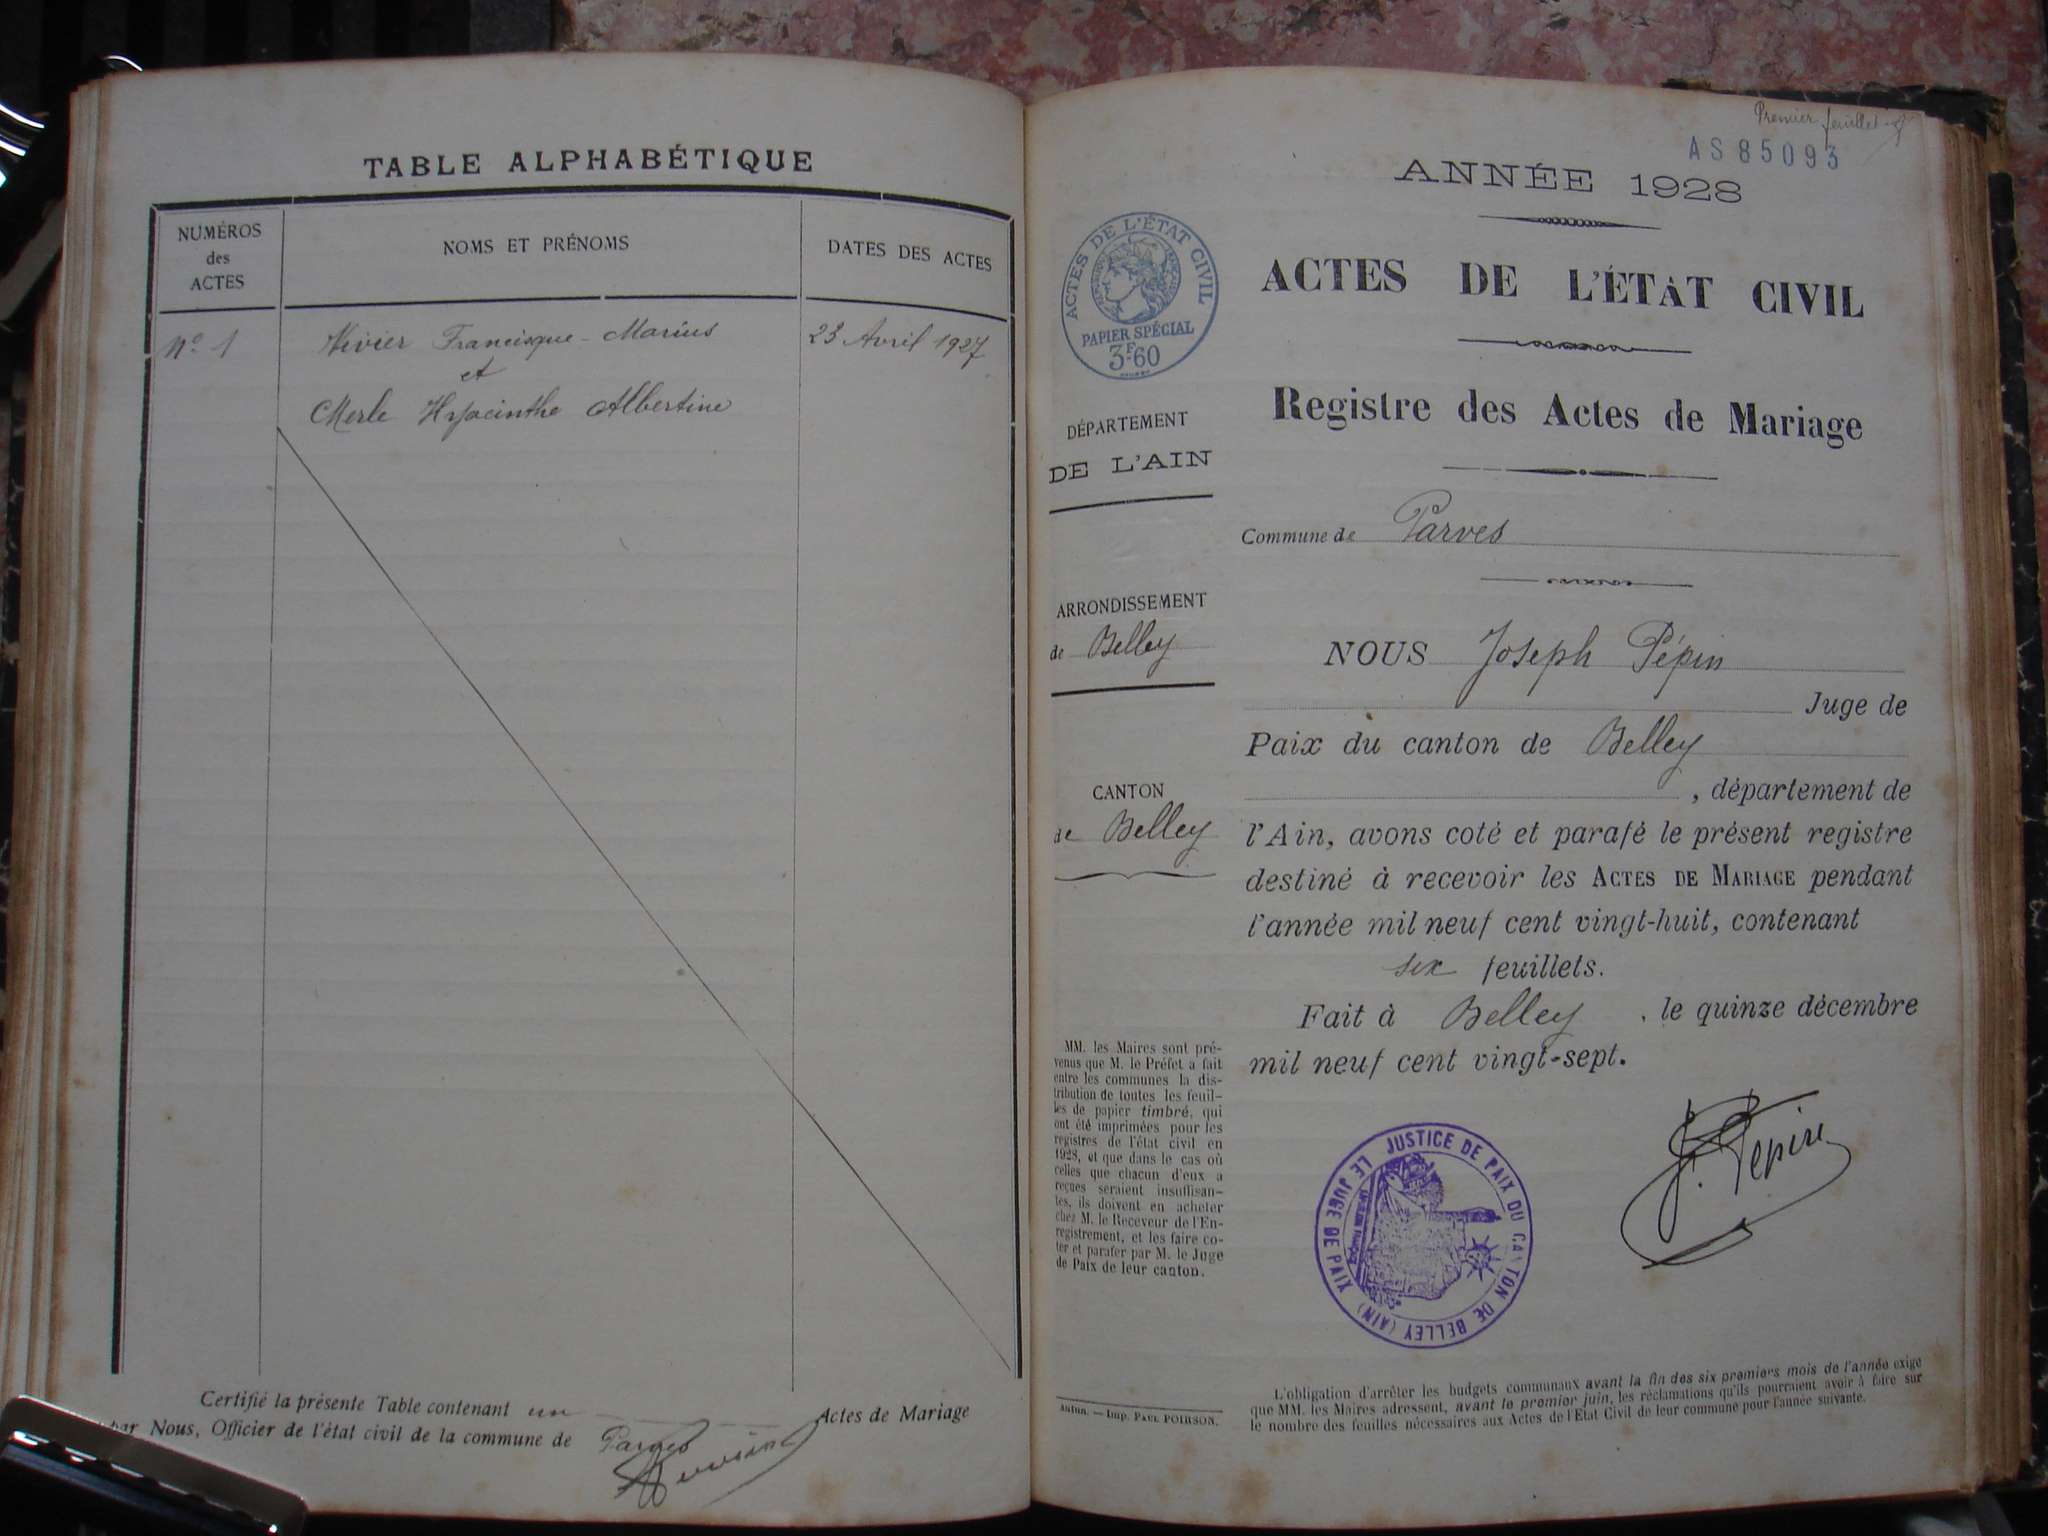 TABLE ALPHABÉTIQUE
NUMÉROS
des
ACTES
NOMS ET PRÉNOMS
DATES DES ACTES
Nº 1
Vivier Francisque-Marius
23 Avril 1927
et
Merle Hyacinthe Albertine
Certifié la présente Table contenant un Actes de Mariage
par Nous, Officier de l'état civil de la commune de Parves
Premier feuillet
AS 85093
ANNÉE 1928
ACTES DE L'ÉTAT CIVIL
RÉPUBLIQUE FRANÇAISE
PAPIER SPÉCIAL
3F60
ACTES DE L'ÉTAT CIVIL
Registre des Actes de Mariage
DÉPARTEMENT
DE L'AIN
Commune de Parves
ARRONDISSEMENT
de Belley
NOUS Joseph Pépin
Juge de
Paix du canton de Belley
, département de
CANTON
de Belley
l'Ain, avons coté et parafé le présent registre
destiné à recevoir les ACTES DE MARIAGE pendant
l'année mil neuf cent vingt-huit, contenant
six feuillets.
Fait à Belley, le quinze décembre
mil neuf cent vingt-sept.
MM. les Maires sont pré-
venus que M. le Préfet a fait
entre les communes la dis-
tribution de toutes les feuil-
les de papier timbré, qui
ont été imprimées pour les
registres de l'état civil en
1928, et que dans le cas où
celles que chacun d'eux a
reçues seraient insuffisan-
tes, ils doivent en acheter
chez M. le Receveur de l'En-
registrement, et les faire co-
ter et parafer par M. le Juge
de Paix de leur canton.
J. Pépin
JUSTICE DE PAIX DU CANTON DE BELLEY (AIN)
LE JUGE DE PAIX
Autun. — Imp. PAUL POIRSON.
L'obligation d'arrêter les budgets communaux avant la fin des six premiers mois de l'année exige
que MM. les Maires adressent, avant le premier juin, les réclamations qu'ils pourraient avoir à faire sur
le nombre des feuilles nécessaires aux Actes de l'Etat Civil de leur commune pour l'année suivante.